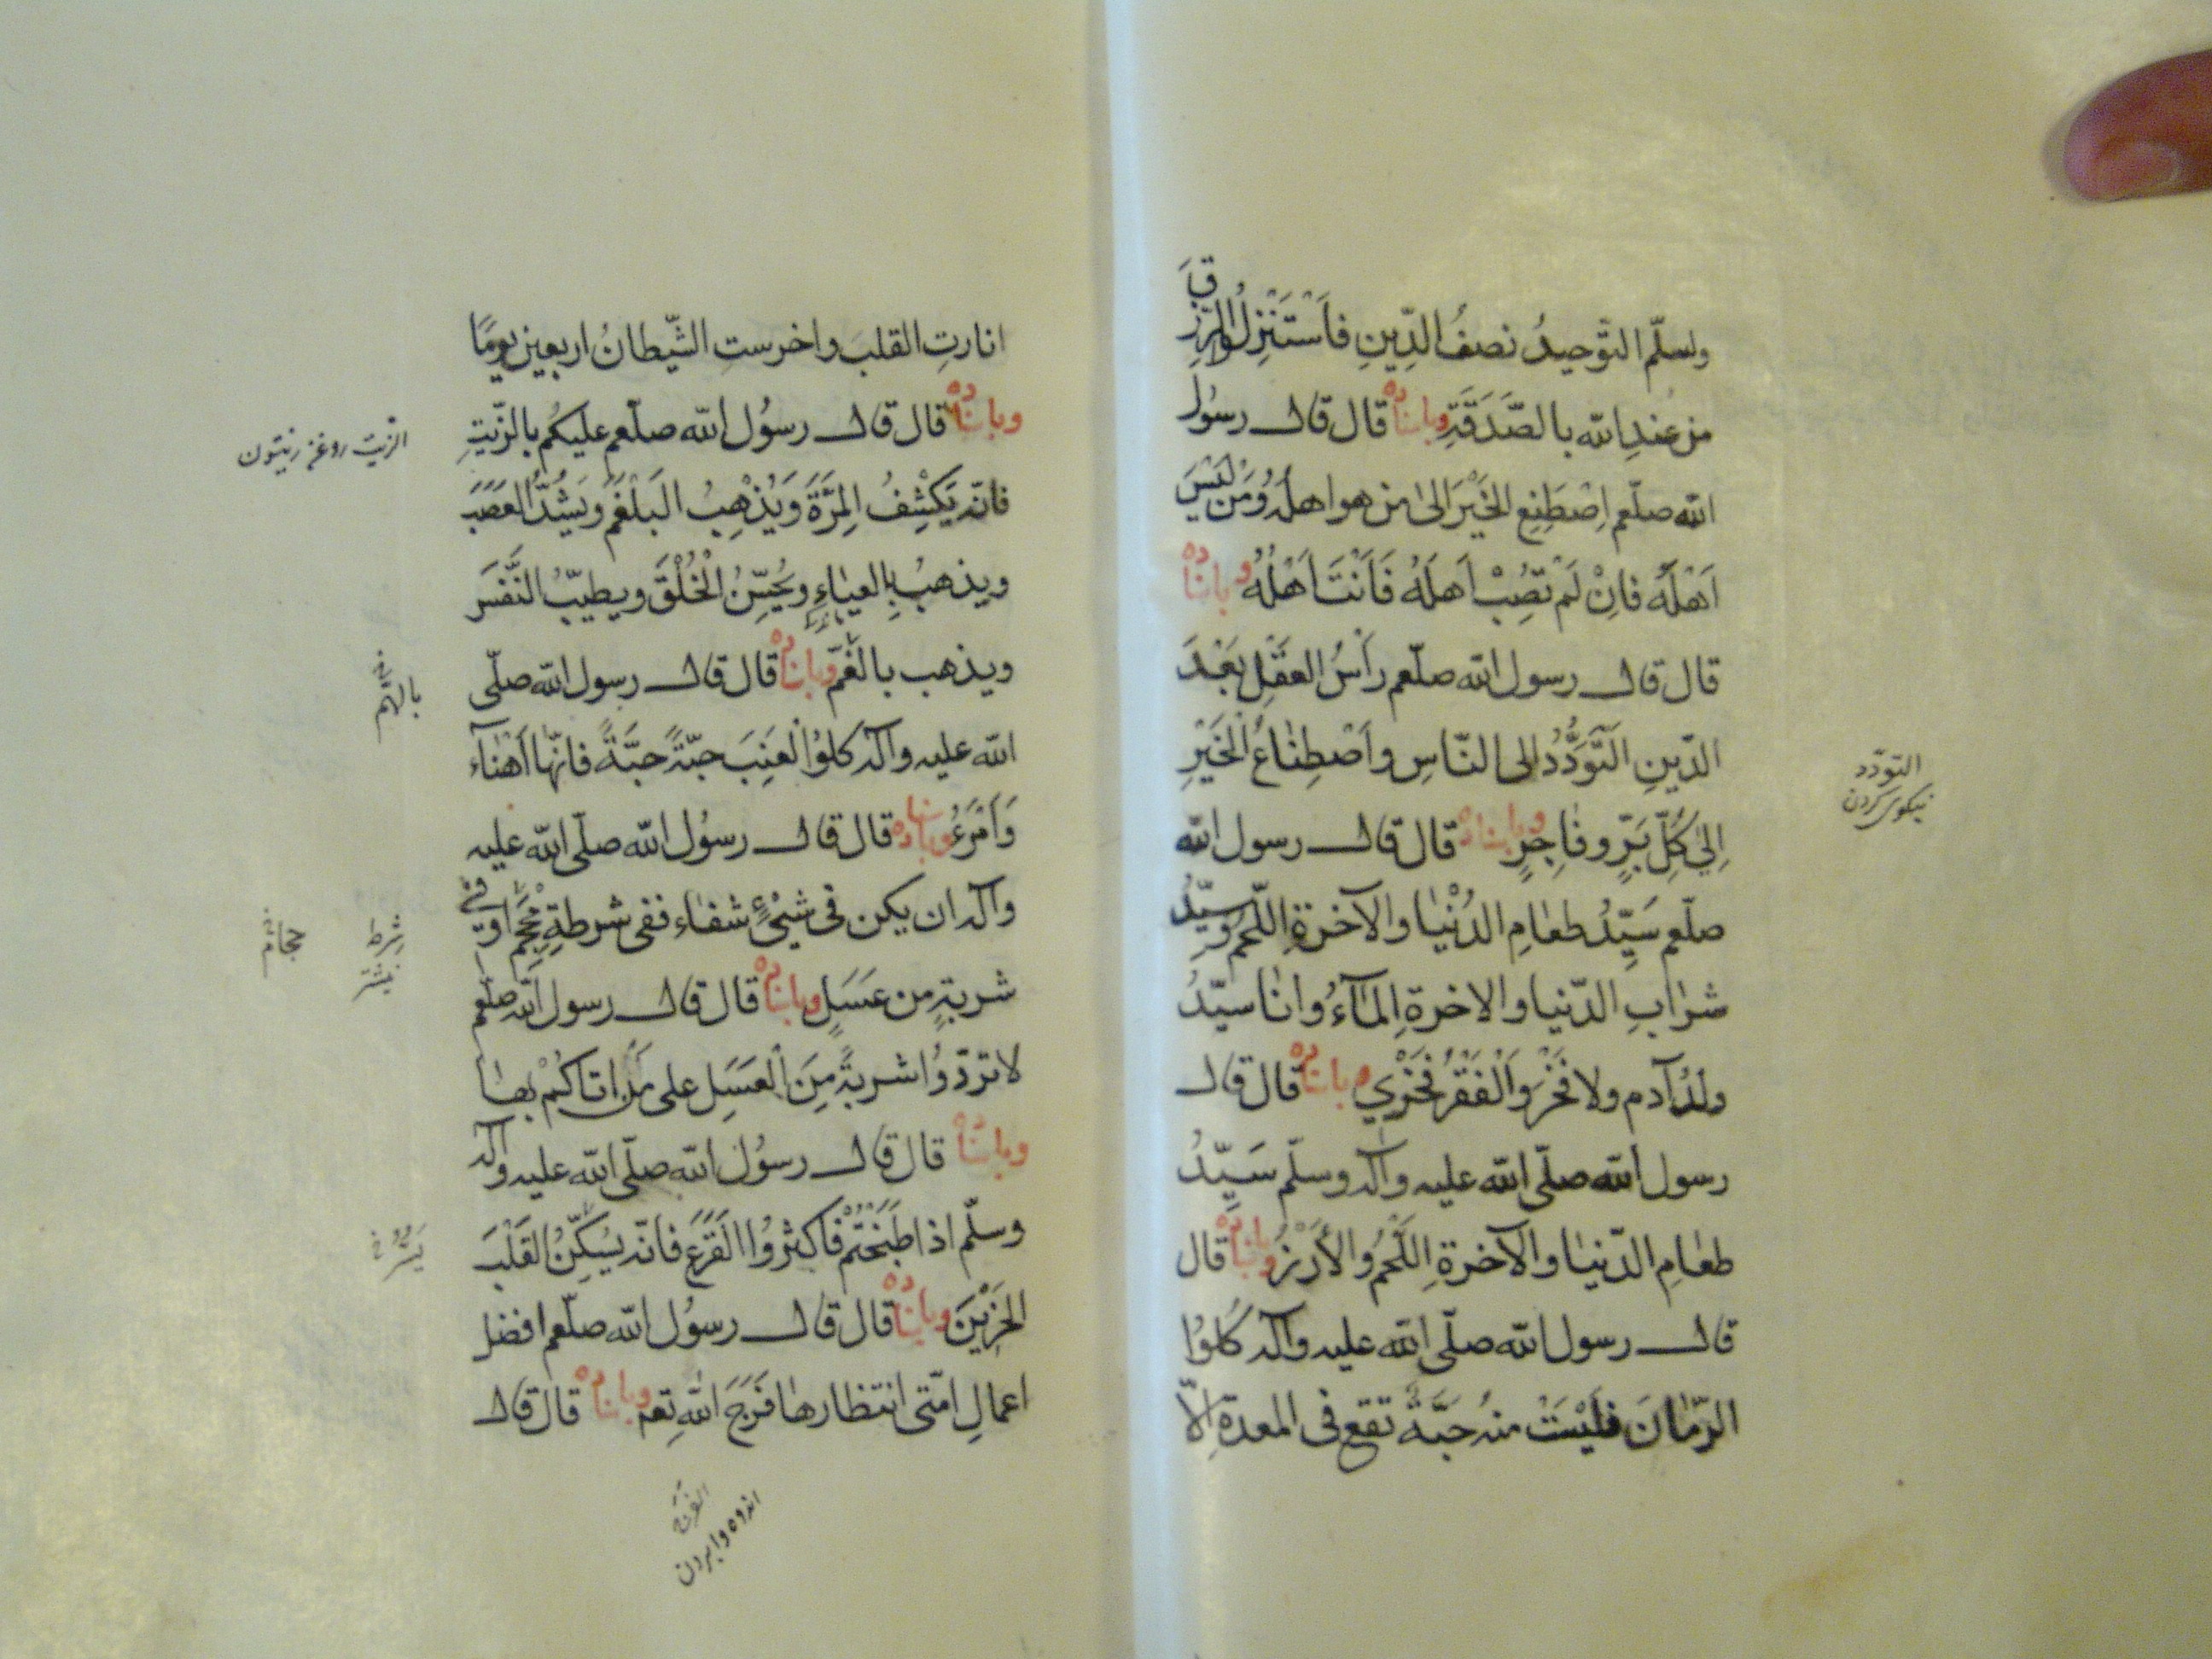 وسلّم التّوحيدُ نصفُ الدِّينِ فاَسْتَنْزِلُوا الرِّزْقَ
من عندِ الله بالصَّدَقَةِ وباسناده قال قال رسول
الله صلّعم اِصْطَنِعِ الخَيْرَ الىٰ من هو اهلُهُ وَمَنْ لَيْسَ
اَهْلَهُ فَاِنْ لَمْ تُصِبْ اَهلَهُ فَاَنْتَ اَهْلُهُ وباسناده
قال قال رسول الله صلّعم رَأسُ العَقْلِ بَعْدَ
الدّينِ التَّوَدُّدُ الى النّاسِ وَاصْطِناعُ الْخَيْرِ
اِلىٰ كُلِّ بَرٍّ وفٰاجِرٍ وباسناده قال قال رسول الله
صلّعم سَيِّدُ طعٰامِ الدُنْيٰا والآخرةِ اللّحمُ وسيِّدُ
شرابِ الدّنيا والاخرةِ المٰآءُ وانٰا سيّدُ
ولدُ آدم ولا فَخْرَ وَالْفَقْرُ فَخْرِي وباسناده قال قال
رسول الله صلّى الله عليه وآله وسلّم سَيِّدُ
طعٰامِ الدّنيٰا والآخرةِ اللَّحْمُ والأرْزُ وباسناده قال
قال رسول الله صلّى الله عليه وآله كلُوُا
الرّمّانَ فلَيْسَتْ منه حَبَّةٌ تقع فى المعدةِ الاّ
التودّد
نيكوى كردن
انارتِ القلبَ واخرستِ الشّيطانُ اربعين يومًا
وباسناده قال قال رسُول الله صلّعم عليكُم بالزّيتِ
فانّه يَكْشِفُ المِرَّةَ وَيُذْهِبُ البَلْغَمَ ويَشُدُّ العَصَبَ
ويذهبُ بِالعيٰاءِ ويُحَسِّنُ الْخُلْقَ ويطيّبُ النَّفَسَ
ويذهب بالغَمّ وباسناده قال قال رسول الله صلّى
الله عليه وآله كلوُا الْعِنَبَ حبّةً حبَّةً فانّها اَهْنٰآء
وَاَمْرَءُ وباسناده قال قال رسُول الله صلّى الله عليه
وآله ان يكن فى شيْئٍ شفٰاء ففى شرطةِ حَجّٰمٍ او فى
شربةٍ من عسَلٍ وباسناده قال قال رسول الله صلّعم
لا تردّوُا شربةً مِنَ العسَلِ على من اتاكُمْ بهٰا
وباسناده قال قال رسُول الله صلّى الله عليه وآله
وسلّم اذا طَبَخْتُمْ فأكثروُا القَرَعَ فانّه يُسَكِّنُ القَلْبَ
الحَزْينَ وباسناده قال قال رسُول الله صلّعم افضل
اعمالِ امّتى انتظارها فَرَجَ اللهِ تعم وباسناده قال قال
الزيت روغن زيتون
بالهَمّ
شرط
نيشتر
حجام
يَسُرُّ